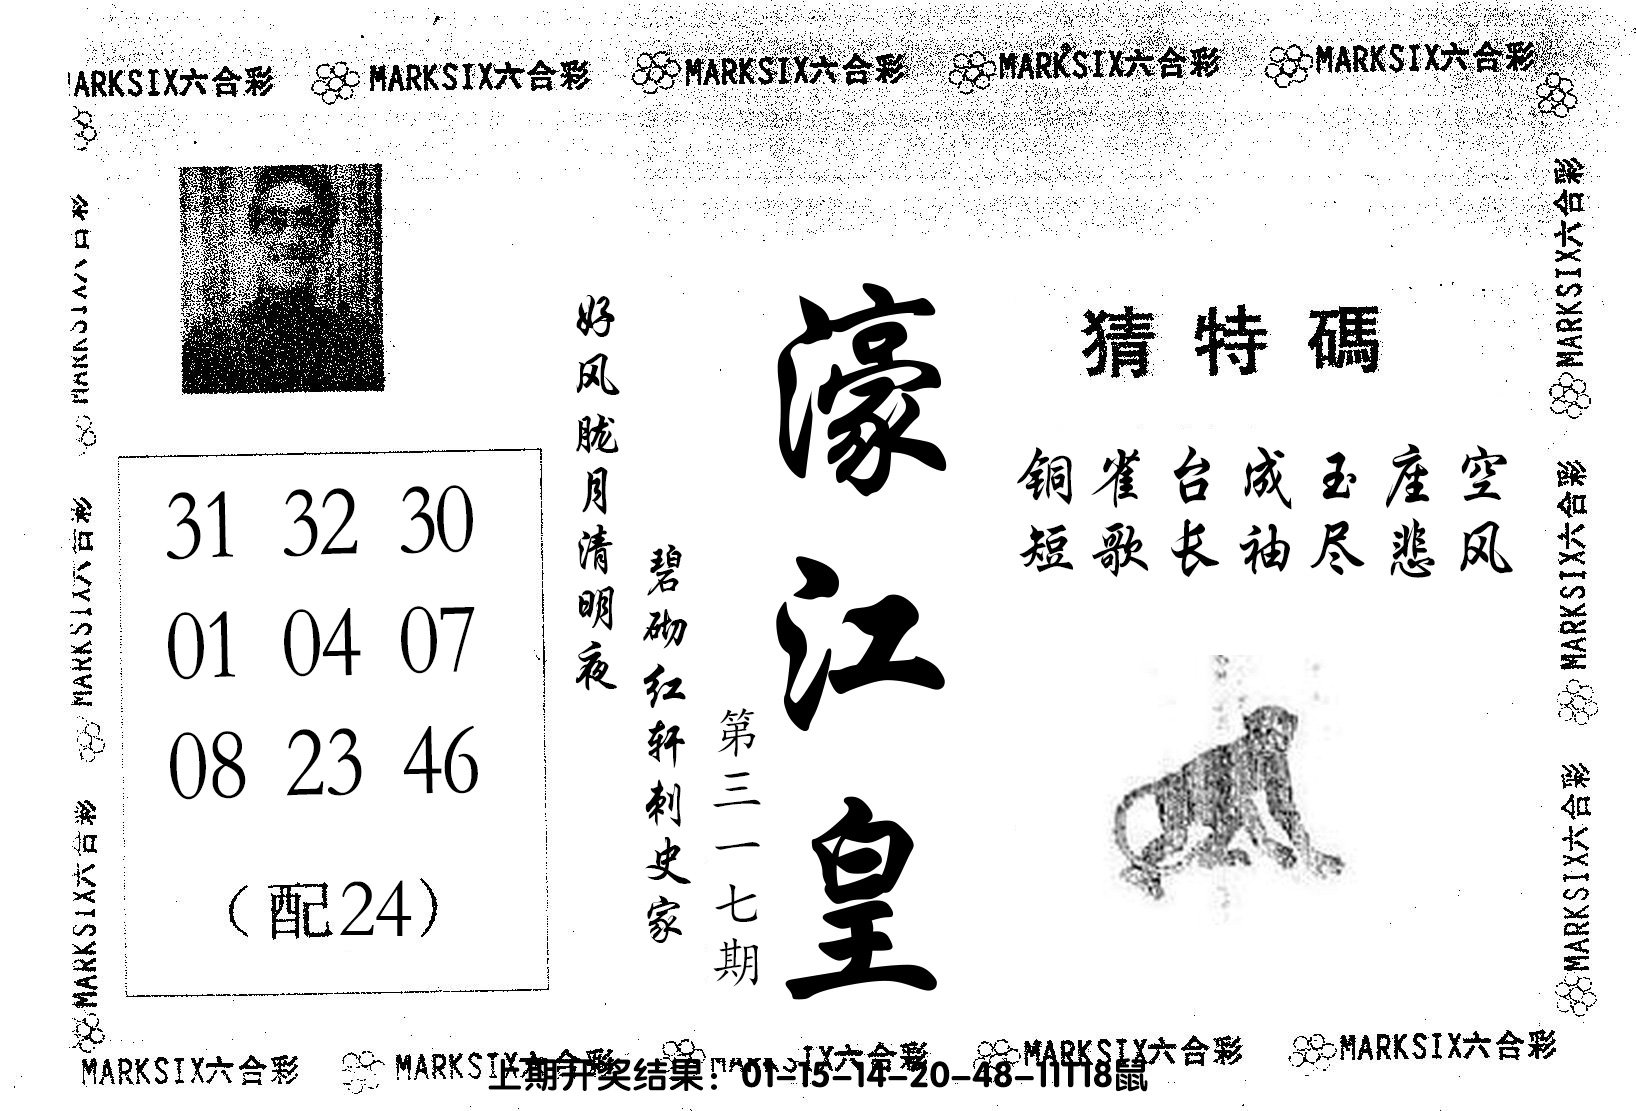 MARKSIX六合彩 MARKSIX六合彩 MARKSIX六合彩 MARKSIX六合彩
猜特碼
铜雀台成玉座空
短歌长袖尽悲风
濠江皇
第三一七期
好风胧月清明夜
碧砌红轩刺史家
31 32 30
01 04 07
08 23 46
（配24）
MARKSIX六合彩
MARKSIX六合彩
MARKSIX六合彩
MARKSIX六合彩
MARKSIX六合彩
MARKSIX六合彩 MARKSIX六合彩 MARKSIX六合彩 MARKSIX六合彩
上期开奖结果：01-15-14-20-48-11T18鼠